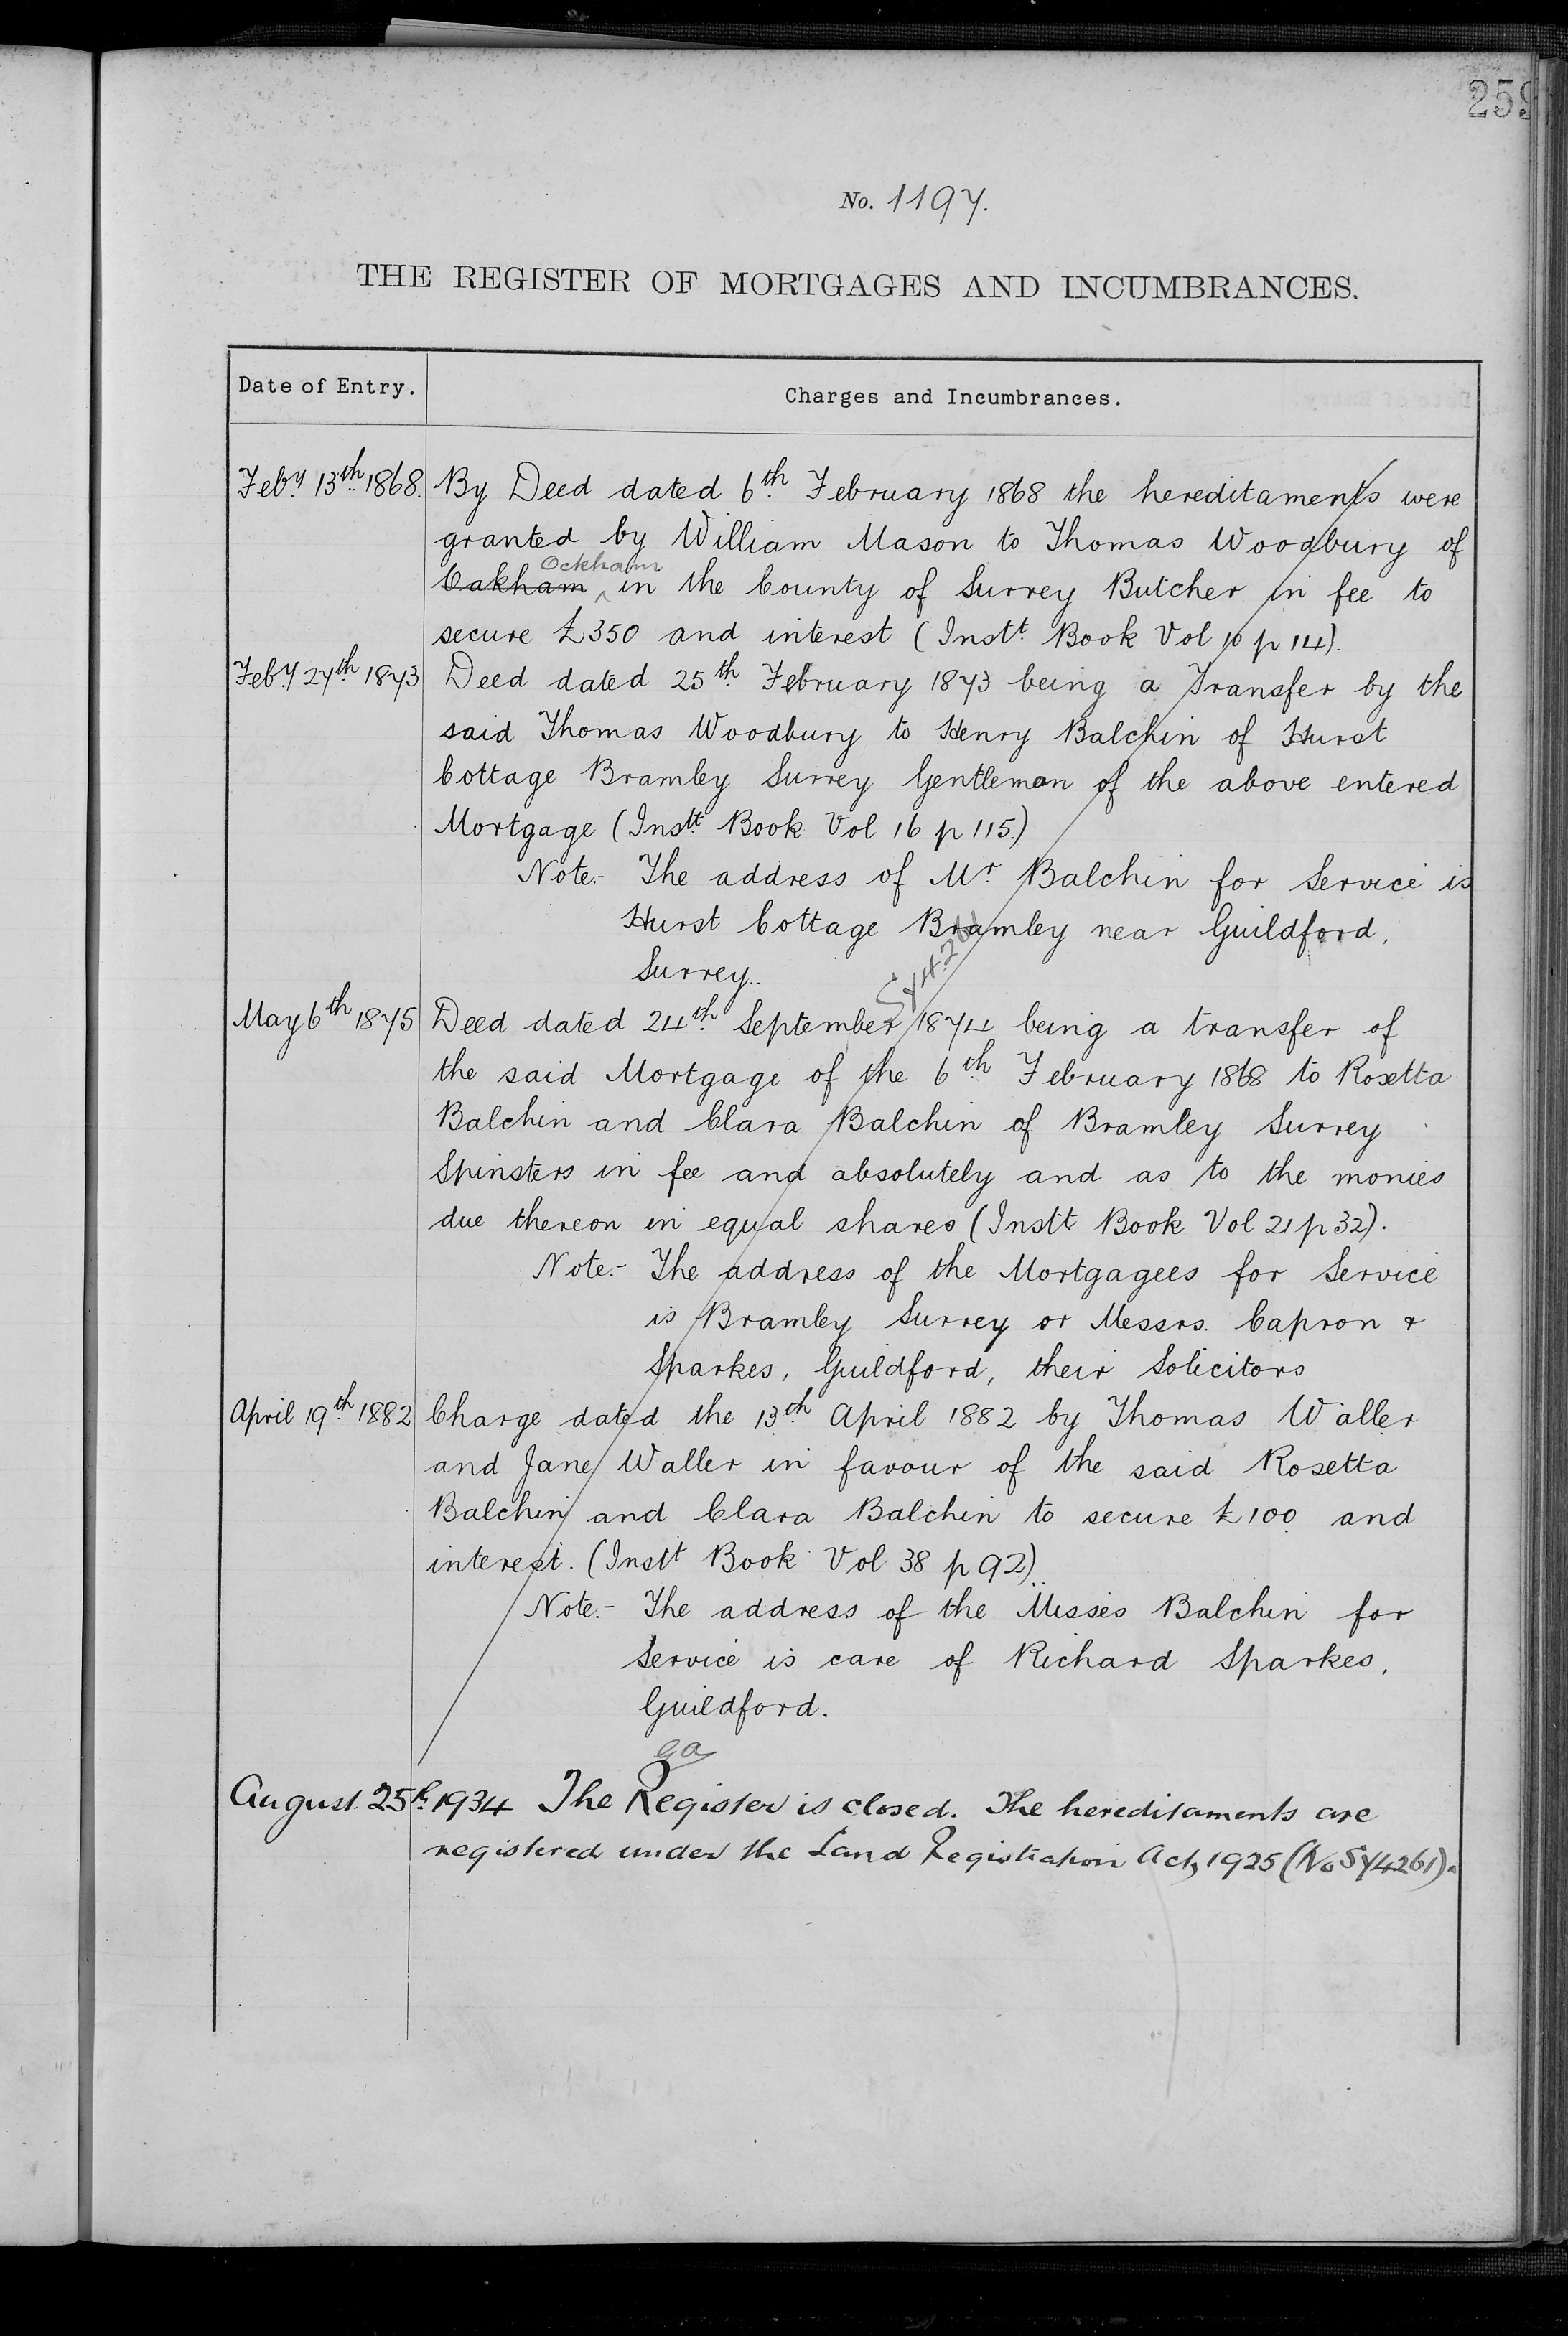 259
No. 1197.
THE REGISTER OF MORTGAGES AND INCUMBRANCES.
Date of Entry. Charges and Incumbrances.
Feby 13th 1868. By Deed dated 6th February 1868 the hereditaments were
granted by William Mason to Thomas Woodbury of
Ockham
Oakham ^ in the County of Surrey Butcher in fee to
secure £350 and interest (Instt Book Vol 10 p 14).
Feby 27th 1873 Deed dated 25th February 1873 being a Transfer by the
said Thomas Woodbury to Henry Balchin of Hurst
Cottage Bramley Surrey Gentleman of the above entered
Mortgage (Instt Book Vol 16 p 115.)
Note:- The address of Mr Balchin for Service is
Hurst Cottage Bramley near Guildford,
Surrey..
SY4261
May 6th 1875 Deed dated 24th September 1874 being a transfer of
the said Mortgage of the 6th February 1868 to Rosetta
Balchin and Clara Balchin of Bramley Surrey
Spinsters in fee and absolutely and as to the monies
due thereon in equal shares (Instt Book Vol 21 p 32).
Note:- The address of the Mortgagees for Service
is Bramley Surrey or Messrs. Capron &
Sparkes, Guildford, their Solicitors
April 19th 1882 Charge dated the 13th April 1882 by Thomas Waller
and Jane Waller in favour of the said Rosetta
Balchin and Clara Balchin to secure £100 and
interest. (Instt Book Vol 38 p 92)..
Note:- The address of the Misses Balchin for
Service is care of Richard Sparkes,
Guildford.
August 25th 1934 The Register is closed. The hereditaments are
registered under the Land Registration Act, 1925 (No SY4261).